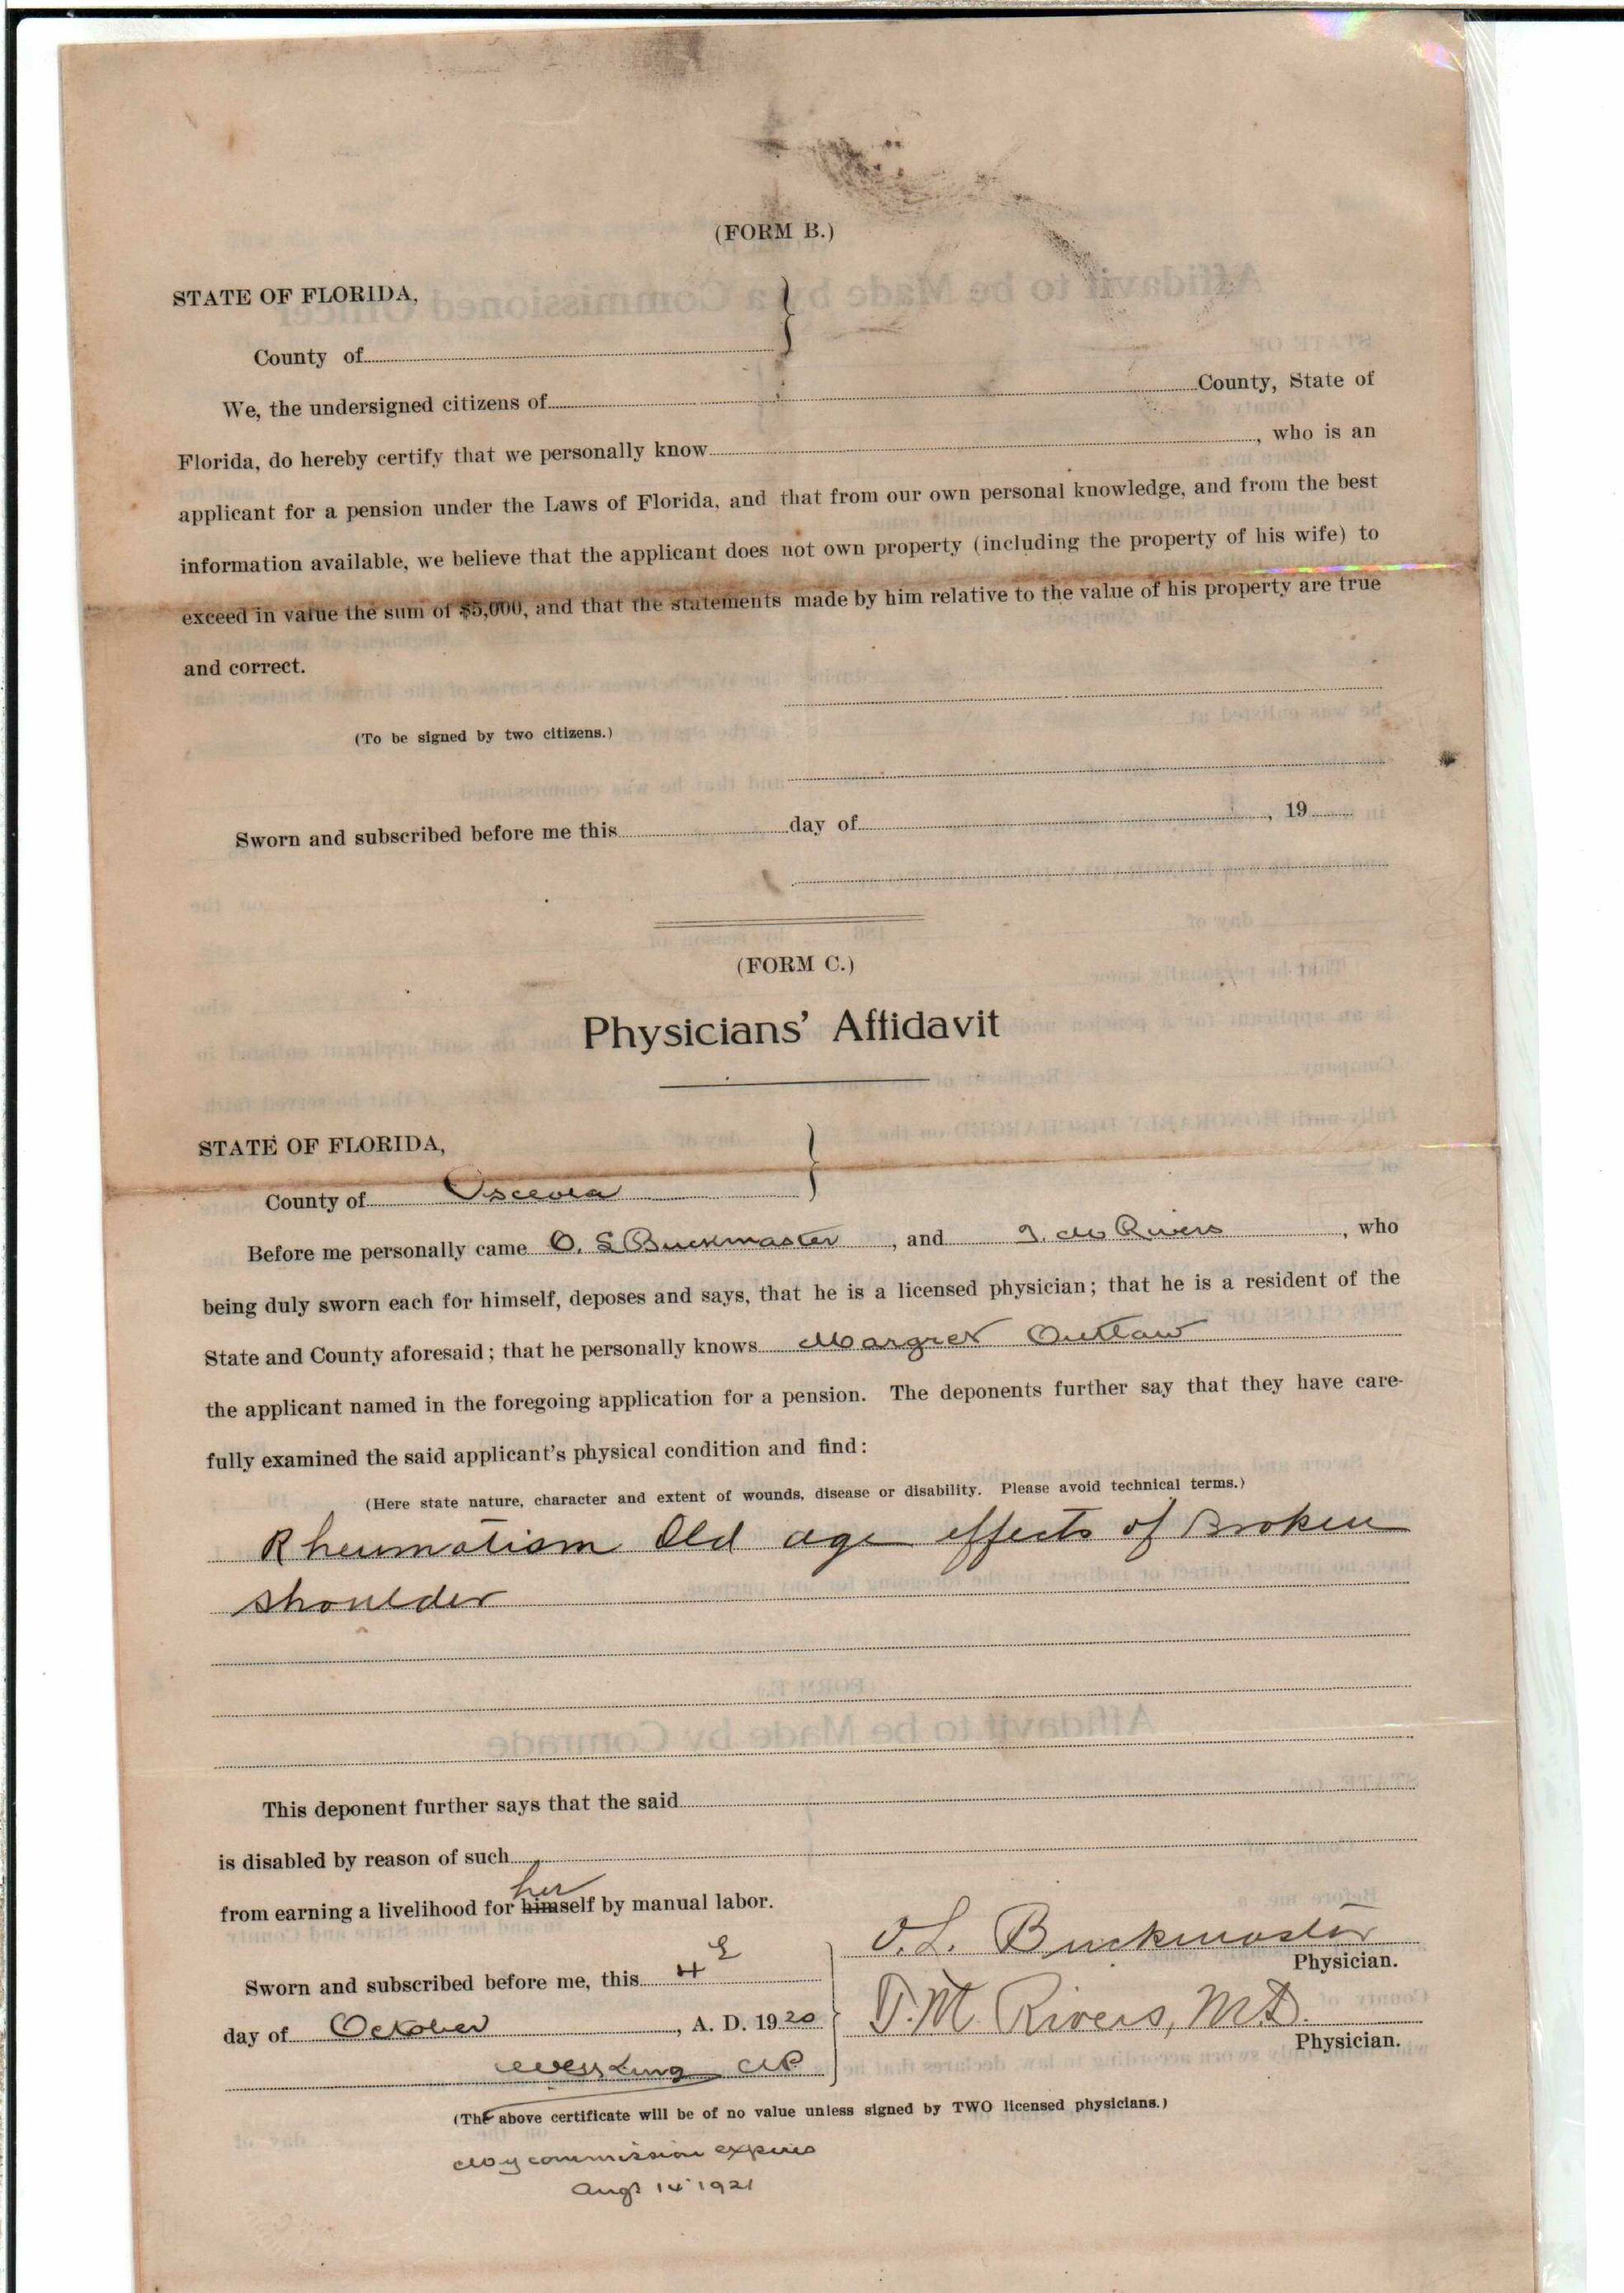 (FORM B.)
STATE OF FLORIDA,
County of
We, the undersigned citizens of County, State of
Florida, do hereby certify that we personally know , who is an
applicant for a pension under the Laws of Florida, and that from our own personal knowledge, and from the best
information available, we believe that the applicant does not own property (including the property of his wife) to
exceed in value the sum of $5,000, and that the statements made by him relative to the value of his property are true
and correct.
(To be signed by two citizens.)
Sworn and subscribed before me this day of , 19
(FORM C.)
Physicians' Affidavit
STATE OF FLORIDA,
County of Osceola
Before me personally came O. L Buckmaster , and T. M Rivers , who
being duly sworn each for himself, deposes and says, that he is a licensed physician; that he is a resident of the
State and County aforesaid; that he personally knows Margret Outlaw
the applicant named in the foregoing application for a pension. The deponents further say that they have care-
fully examined the said applicant's physical condition and find:
(Here state nature, character and extent of wounds, disease or disability. Please avoid technical terms.)
Rheumatism Old age effects of Broken
shoulder
This deponent further says that the said
is disabled by reason of such
her
from earning a livelihood for himself by manual labor.
O. L. Buckmaster
Physician.
Sworn and subscribed before me, this 4
day of October , A. D. 1920
T. M. Rivers, M.D.
Physician.
(The above certificate will be of no value unless signed by TWO licensed physicians.)
My commission expires
Augt 14 1921